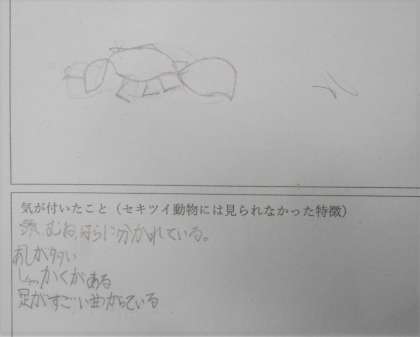 気が付いたこと（セキツイ動物には見られなかった特徴）
頭、むね、はらに分かれている。
あしが多い
しょっかくがある
足がすごい曲がっている